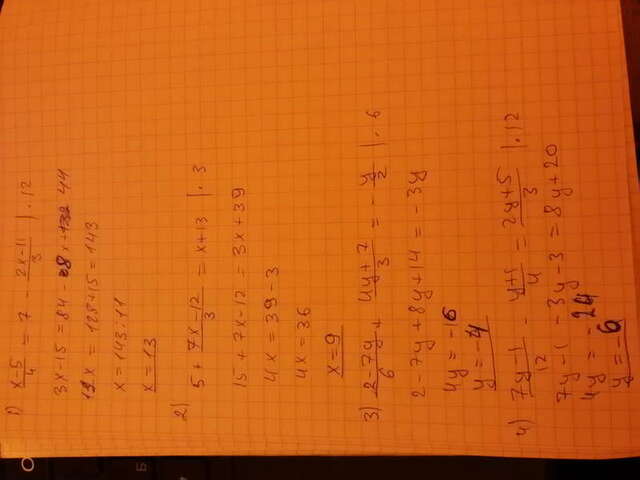 1) (x-5)/4 = 7 - (2x-11)/3 | · 12
3x-15 = 84 - 8x + 44
11x = 128+15 = 143
x = 143:11
x = 13
2)
5 + (7x-12)/3 = x+13 | · 3
15 + 7x-12 = 3x+39
4x = 39-3
4x = 36
x=9
3) (2-7y)/6 + (4y+7)/3 = - y/2 | · 6
2-7y+8y+14 = -3y
4y = -16
y = -4
4) (7y-1)/12 - (y+1)/4 = (2y+5)/3 | · 12
7y-1 -3y-3 = 8y+20
4y = -24
y = -6